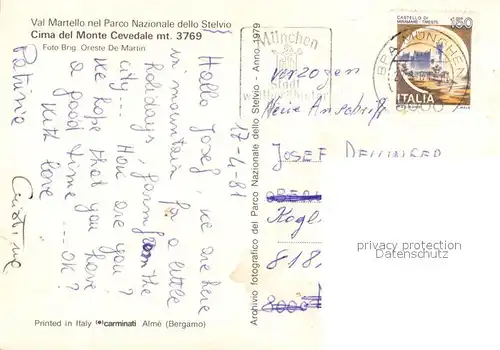 Val Martello nel Parco Nazionale dello Stelvio
Cima del Monte Cevedale mt. 3769
Foto Brig. Oreste De Martin
17-4-81
Hallo Josef, we are here
in mountain for a little
holidays, farm from the
city... How are you?
we hope that you have
a good time... OK?
With love
Patrizia
Cristina
Archivio fotografico del Parco Nazionale dello Stelvio - Anno 1979
München
Stadt
CASTELLO DI
MIRAMARE TRIESTE
150
ITALIA
BPA MÜNCHEN
verzogen
Neue Anschrift
JOSEF
Kogl
818
8000
privacy protection
Datenschutz
Printed in Italy carminati Almè (Bergamo)